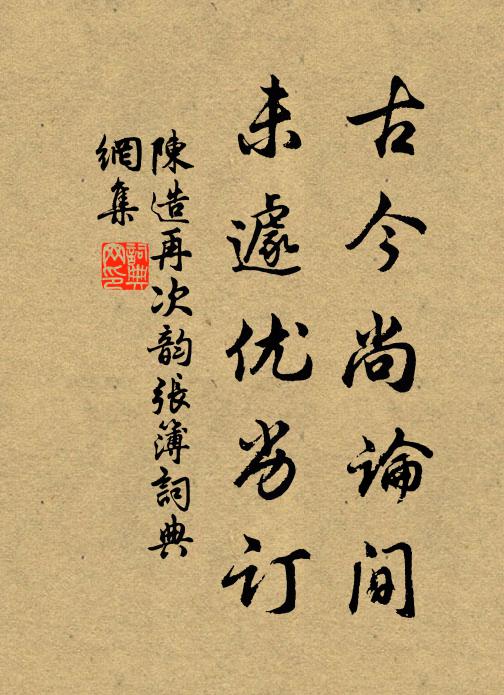 古今尚論间
未遽优劣订
陳造再次韵張簿詞典
網集
詞典网印